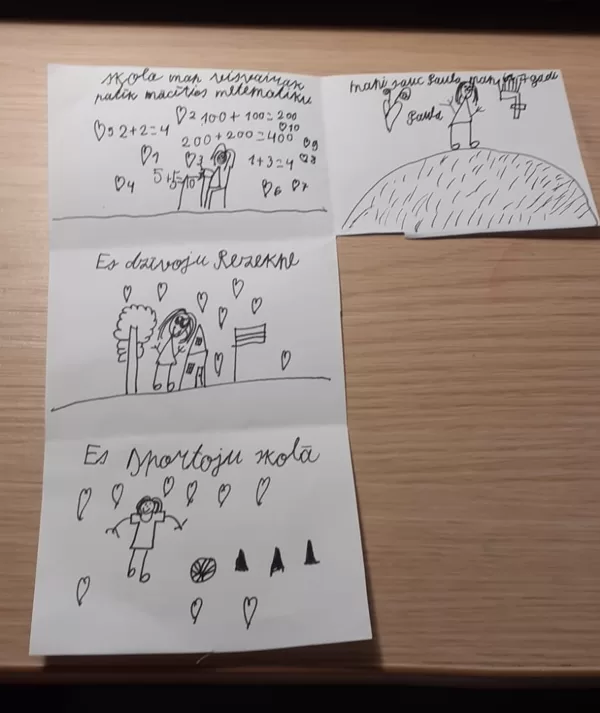 skola man visvairāk
patīk mācīties metematiku
♡5 2+2=4
♡2 100+100=200
200+200=400
♡10
♡9
♡1
♡3
1+3=4
♡8
♡4
5+5=10
♡6
♡7
mani sauc Paula man ir 7 gadi
Paula
7
Es dzīvoju Rezekne
Es sportoju skolā